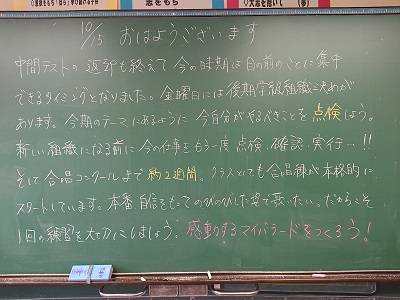 志をもち
◎大志を抱いて （夢）
10/5 おはようございます
中間テストの返却も終えて今の時期は目の前のことに集中
できるタイミングとなりました。金曜日には後期学級組織決めが
あります。今期のテーマにあるように今自分がやるべきことを点検しよう。
新しい組織になる前に今の仕事をもう一度点検、確認、実行…!!
そして合唱コンクールまで約2週間。クラスとしても合唱練が本格的に
スタートしています。本番自信をもってのびのびした姿で歌いたい。だからこそ
1回の練習を大切にしましょう。感動するマイバラードをつくろう！